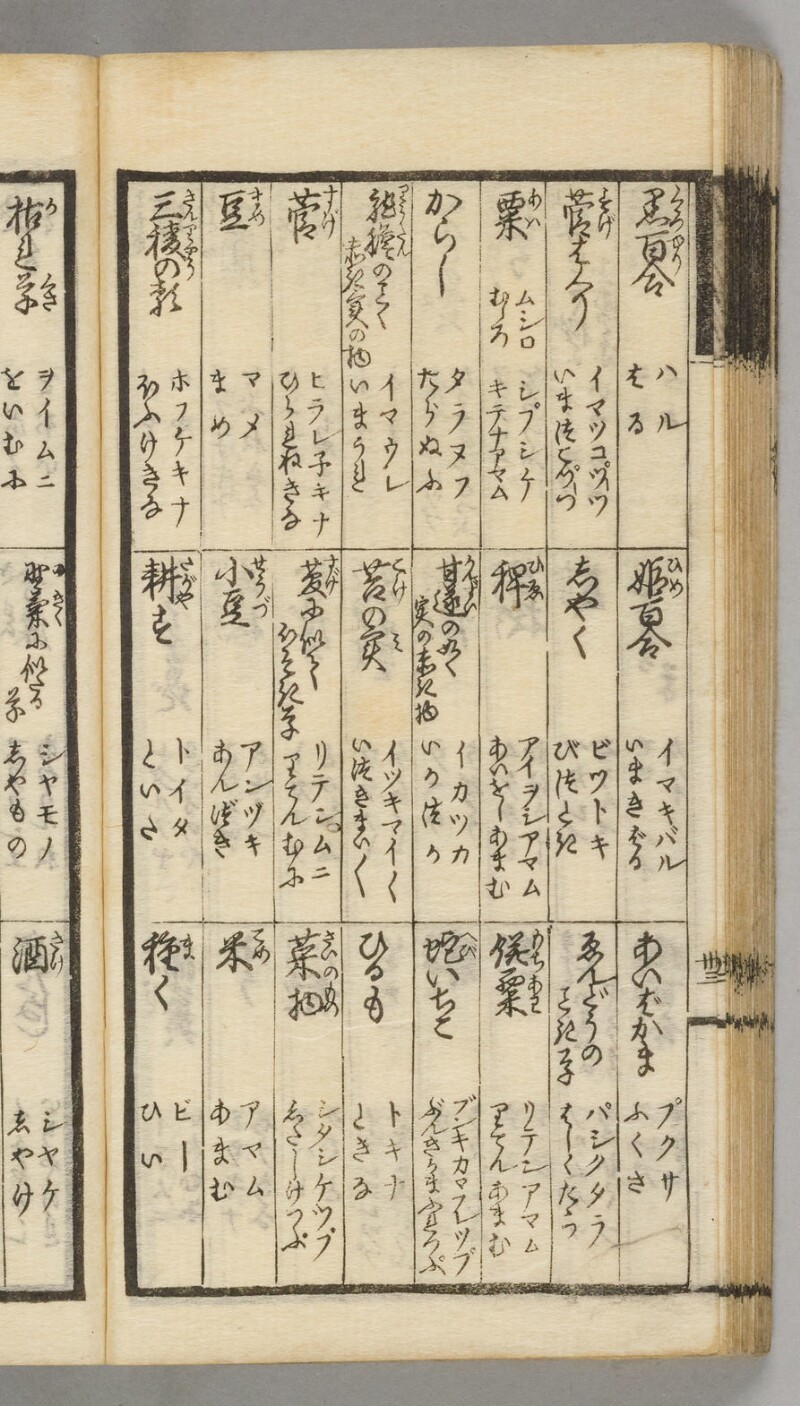 黒百合 くろゆり
ハル
はる
菅
イマツコツツ
粟 あハ
ムシロ
むしろ
シプシケ
キテナアマム
からし
タラヌフ
たらぬふ
イマウレ
いまうれ
菅 すげ
ヒラレ子キナ
ひられねきな
豆 まめ
マメ
まめ
三稜の類
ホフケキナ
ほふけきな
姫百合 ひめ
イマキバル
いまきばる
志やく
ビツトキ
稗 ひゑ
アイヲシアマム
あいをしあまむ
甘遂の如く
実の赤き物
イカツカ
いかつか
苔の実 こけ ミ
イツキマイ〱
いつきまい〱
菱に似て
ほそき草
リテンムニ
りてんむに
小豆 せうづ
アンヅキ
あんづき
耕す たがや
トイタ
といた
あいばかま
プクサ
ふくさ
ゑんどうの
ごとき草
パシクタラ
はしくたら
餅粟 もちあわ
リテンアマム
りてんあまむ
蛇いちご へび
ブンキカマフレツプ
ひるも
トキナ
ときな
菜物
シタシケツプ
米 こめ
アマム
あまむ
種く ま
ビー
ひい
卅三
枯れ草 か くさ
ヲイムニ
をいむに
野菊に似たる草 のぎく
シヤモノ
志やもの
酒 さけ
シヤケ
志やけ